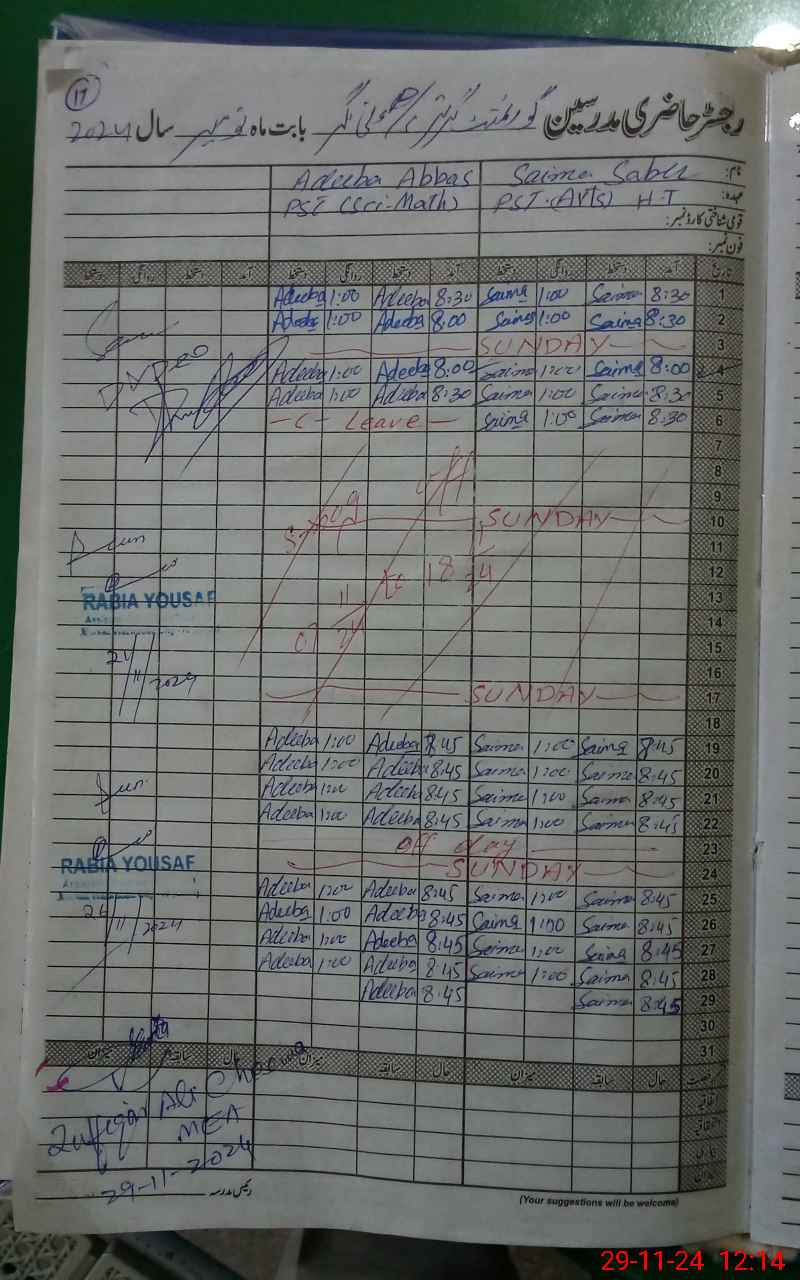 17
رجسٹر حاضری مدرسین گورنمنٹ گرلز بابت ماہ نومبر سال 2024
نام: Saima Saber Adeeba Abbas
عہدہ: PST (Arts) H.T PST (Sci-Math)
قومی شناختی کارڈ نمبر:
فون نمبر:
تاریخ آمد دستخط روانگی دستخط آمد دستخط روانگی دستخط آمد دستخط روانگی دستخط
Adeeba 1:00 Adeeba 8:30 Saima 1:00 Saima 8:30 1
Adeeba 1:00 Adeeba 8:00 Saima 1:00 Saima 8:30 2
SUNDAY 3
Adeeba 1:00 Adeeba 8:00 Saima 1:00 Saima 8:00 4
Adeeba 1:00 Adeeba 8:30 Saima 1:00 Saima 8:30 5
C - Leave Saima 1:00 Saima 8:30 6
7
8
9
Smog off
SUNDAY 10
11
12
13
07 11/24 to 18 11/24
14
15
16
SUNDAY 17
18
Adeeba 1:00 Adeeba 8:45 Saima 1:00 Saima 8:45 19
Adeeba 1:00 Adeeba 8:45 Saima 1:00 Saima 8:45 20
Adeeba 1:00 Adeeba 8:45 Saima 1:00 Saima 8:45 21
Adeeba 1:00 Adeeba 8:45 Saima 1:00 Saima 8:45 22
off day 23
SUNDAY 24
Adeeba 1:00 Adeeba 8:45 Saima 1:00 Saima 8:45 25
Adeeba 1:00 Adeeba 8:45 Saima 1:00 Saima 8:45 26
Adeeba 1:00 Adeeba 8:45 Saima 1:00 Saima 8:45 27
Adeeba 1:00 Adeeba 8:45 Saima 1:00 Saima 8:45 28
Adeeba 8:45 Saima 8:45 29
30
31
RABIA YOUSAF
21/11/2024
RABIA YOUSAF
26/11/2024
رخصت حال سابقہ میزان حال سابقہ میزان حال سابقہ میزان
اتفاقیہ
MEA
29-11-2024
رئیس مدرسہ
(Your suggestions will be welcome)
29-11-24 12:14